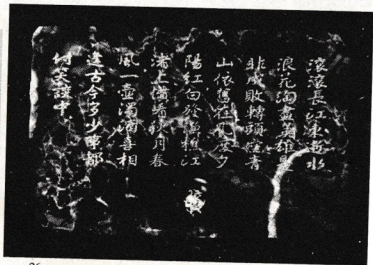 滾滾長江東逝水
浪花淘盡英雄是
非成敗轉頭空青
山依舊在几度夕
陽紅白發漁樵江
渚上慣看秋月春
風一壺濁酒喜相
逢古今多少事都
付笑談中
26